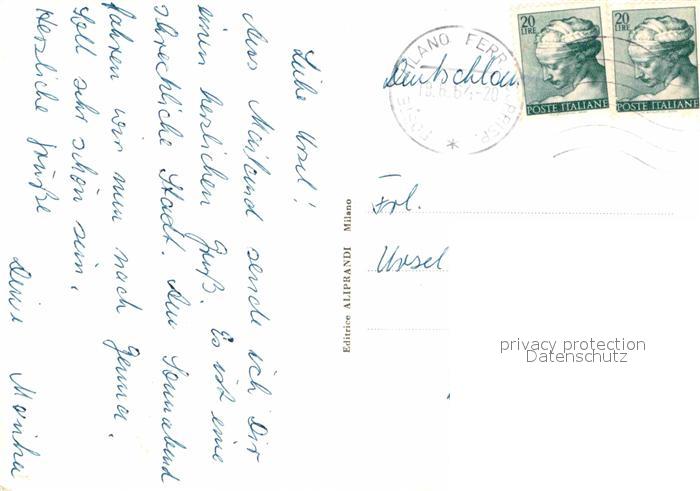 Liebe Ursel!
Aus Mailand sende ich Dir
einen herzlichen Gruß. Es ist eine
schreckliche Stadt. Am Sonnabend
fahren wir nun nach Genua.
Soll sehr schön sein.
Herzliche Grüße
Deine Monika
Editrice ALIPRANDI Milano
Deutschland
POSTE MILANO FERR. CORRISP.
19.6.64-20
20 LIRE
POSTE ITALIANE
20 LIRE
POSTE ITALIANE
Frl.
Ursel
privacy protection
Datenschutz